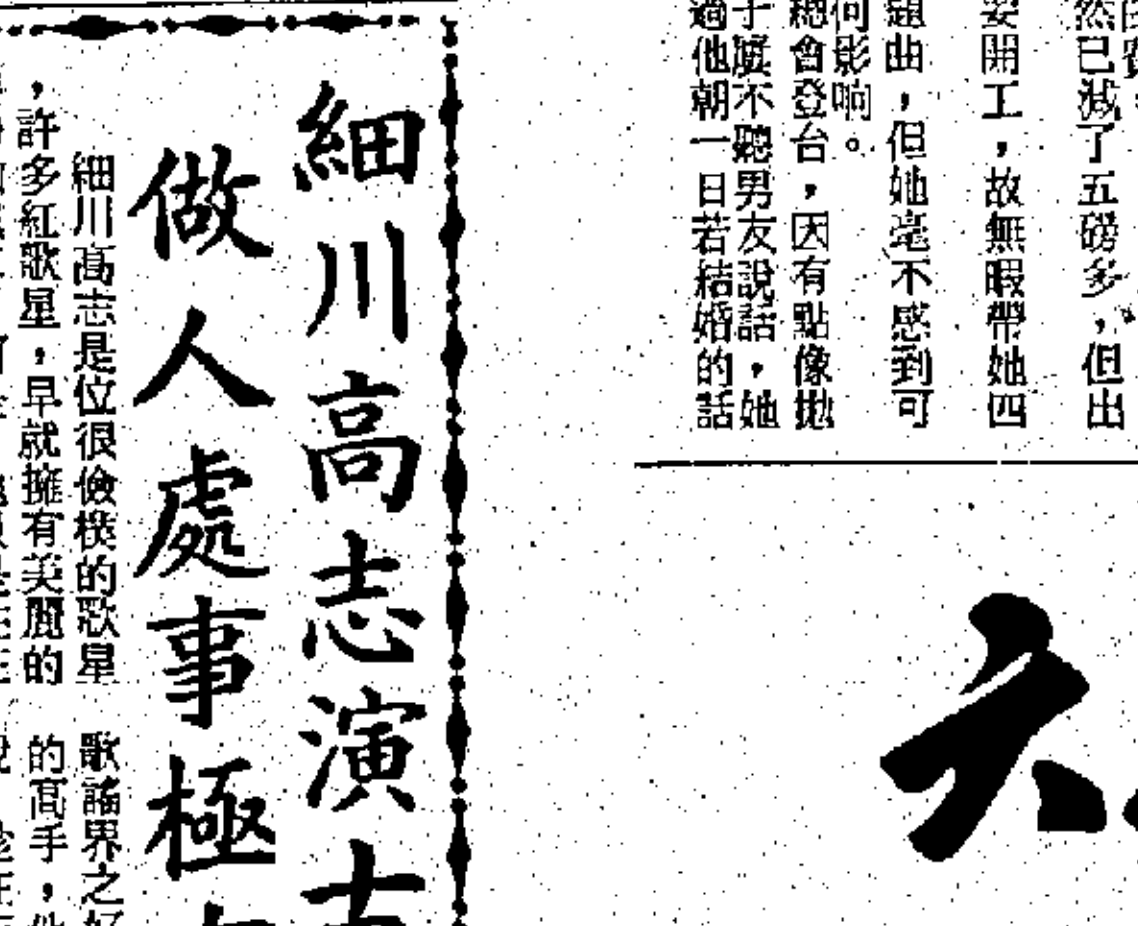 然已減了五磅多，但出
開工，故無暇帶她四
組曲，但她毫不感到可
何影响。
總會登台，因有點像拋
子屢不聽男友說話，她
過他朝一日若結婚的話
六
細川高志演
做人處事極
細川高志是位很儉樸的歌星
，許多紅歌星，早就擁有美麗的
歌謠界之好
的高手，他